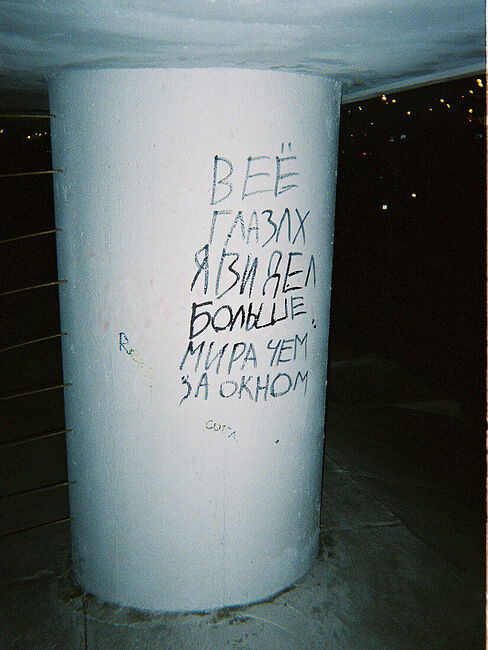 В ЕЁ
ГЛАЗАХ
Я ВИДЕЛ
БОЛЬШЕ
МИРА ЧЕМ
ЗА ОКНОМ